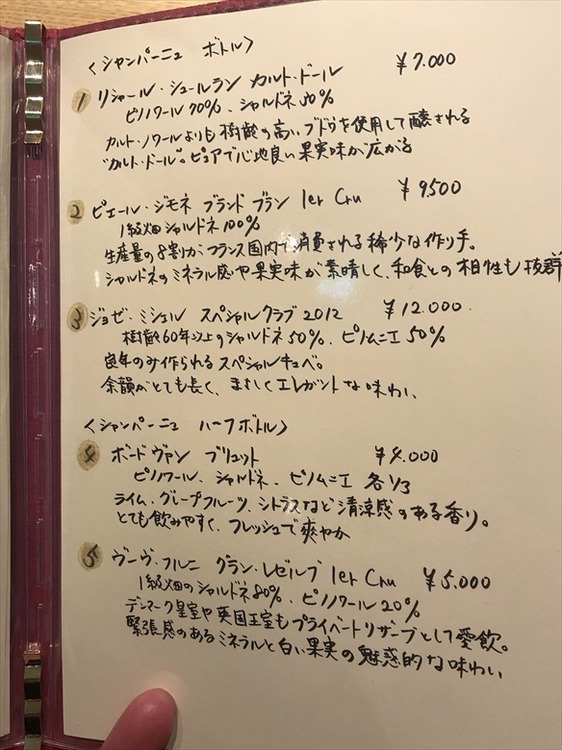 〈シャンパーニュ ボトル〉
1 リシャール・シュールラン カルト・ドール ¥7.000
ピノノワール 70%、シャルドネ 30%
カルト・ノワールよりも樹齢の高いブドウを使用して醸される
"カルト・ドール"。ピュアで心地良い果実味が広がる
2 ピエール・ジモネ ブランド ブラン 1er Cru ¥9500
1級畑シャルドネ100%
生産量の8割がフランス国内で消費される稀少な作り手。
シャルドネのミネラル感や果実味が素晴しく、和食との相性も抜群
3 ジョゼ・ミシェル スペシャルクラブ 2012 ¥12.000
樹齢60年以上のシャルドネ50%、ピノムニエ50%
良年のみ作られるスペシャルキュベ。
余韻がとても長く、まさしくエレガントな味わい
〈シャンパーニュ ハーフボトル〉
4 ボードヴァン ブリュット ¥4.000
ピノノワール、シャルドネ、ピノムニエ 各1/3
ライム、グレープフルーツ、シトラスなど清涼感のある香り。
とても飲みやすく、フレッシュで爽やか
5 ヴーヴ・フルニ グラン・レゼルブ 1er Cru ¥5.000
1級畑のシャルドネ80%、ピノノワール20%
デンマーク皇室や英国王室もプライベートリザーブとして愛飲。
緊張感のあるミネラルと白い果実の魅惑的な味わい